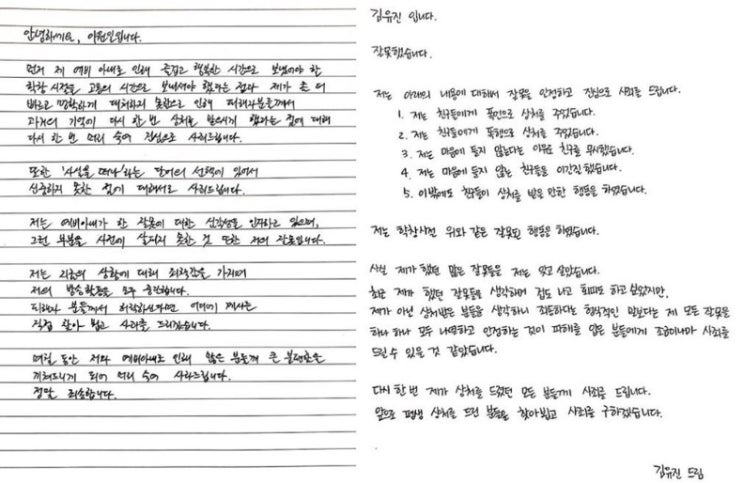 안녕하세요, 이원일입니다.
먼저 제 예비 아내로 인해 즐겁고 행복한 시간으로 보냈어야 할
학창 시절을 고통의 시간으로 보내셔야 했다는 점과 제가 좀 더
빠르고 명확하게 대처하지 못함으로 인해 피해자분들께서
과거의 기억이 다시 한 번 상처를 받으시게 했다는 점에 대해
다시 한 번 머리 숙여 진심으로 사죄드립니다.
또한 '사실을 떠나'라는 단어의 선택에 있어서
신중하지 못한 점에 대해서도 사죄드립니다.
저는 예비아내가 한 잘못에 대한 심각성을 인지하고 있으며,
그런 부분을 사전에 살피지 못한 것 또한 저의 잘못입니다.
저는 지금의 상황에 대해 죄책감을 가지며
저의 방송활동을 모두 중단합니다.
피해자 분들께서 허락하신다면 어디에 계시든
직접 찾아 뵙고 사죄를 드리겠습니다.
며칠 동안 저와 예비아내로 인해 많은 분들께 큰 불편함을
끼쳐드리게 되어 머리 숙여 사과드립니다.
정말 죄송합니다.
김유진 입니다.
잘못했습니다.
저는 아래의 내용에 대해서 잘못을 인정하고 진심으로 사죄를 드립니다.
1. 저는 친구들에게 폭언으로 상처를 주었습니다.
2. 저는 친구들에게 폭행으로 상처를 주었습니다.
3. 저는 마음에 들지 않는다는 이유로 친구를 무시했습니다.
4. 저는 마음에 들지 않는 친구들을 이간질 했습니다.
5. 이 밖에도 친구들이 상처를 받을 만한 행동을 하였습니다.
저는 학창시절 위와 같은 잘못된 행동을 하였습니다.
사실 제가 했던 많은 잘못들을 저는 잊고 살았습니다.
처음 제가 했던 잘못들을 생각하며 겁도 나고 회피도 하고 싶었지만,
제가 아닌 상처받은 분들을 생각하니 죄송하다는 형식적인 말보다는 제 모든 잘못을
하나 하나 모두 나열하고 인정하는 것이 피해를 입은 분들에게 조금이나마 사죄를
드릴 수 있을 것 같았습니다.
다시 한 번 제가 상처를 드렸던 모든 분들께 사죄를 드립니다.
앞으로 평생 상처를 드린 분들을 찾아뵙고 사죄를 구하겠습니다.
김유진 드림